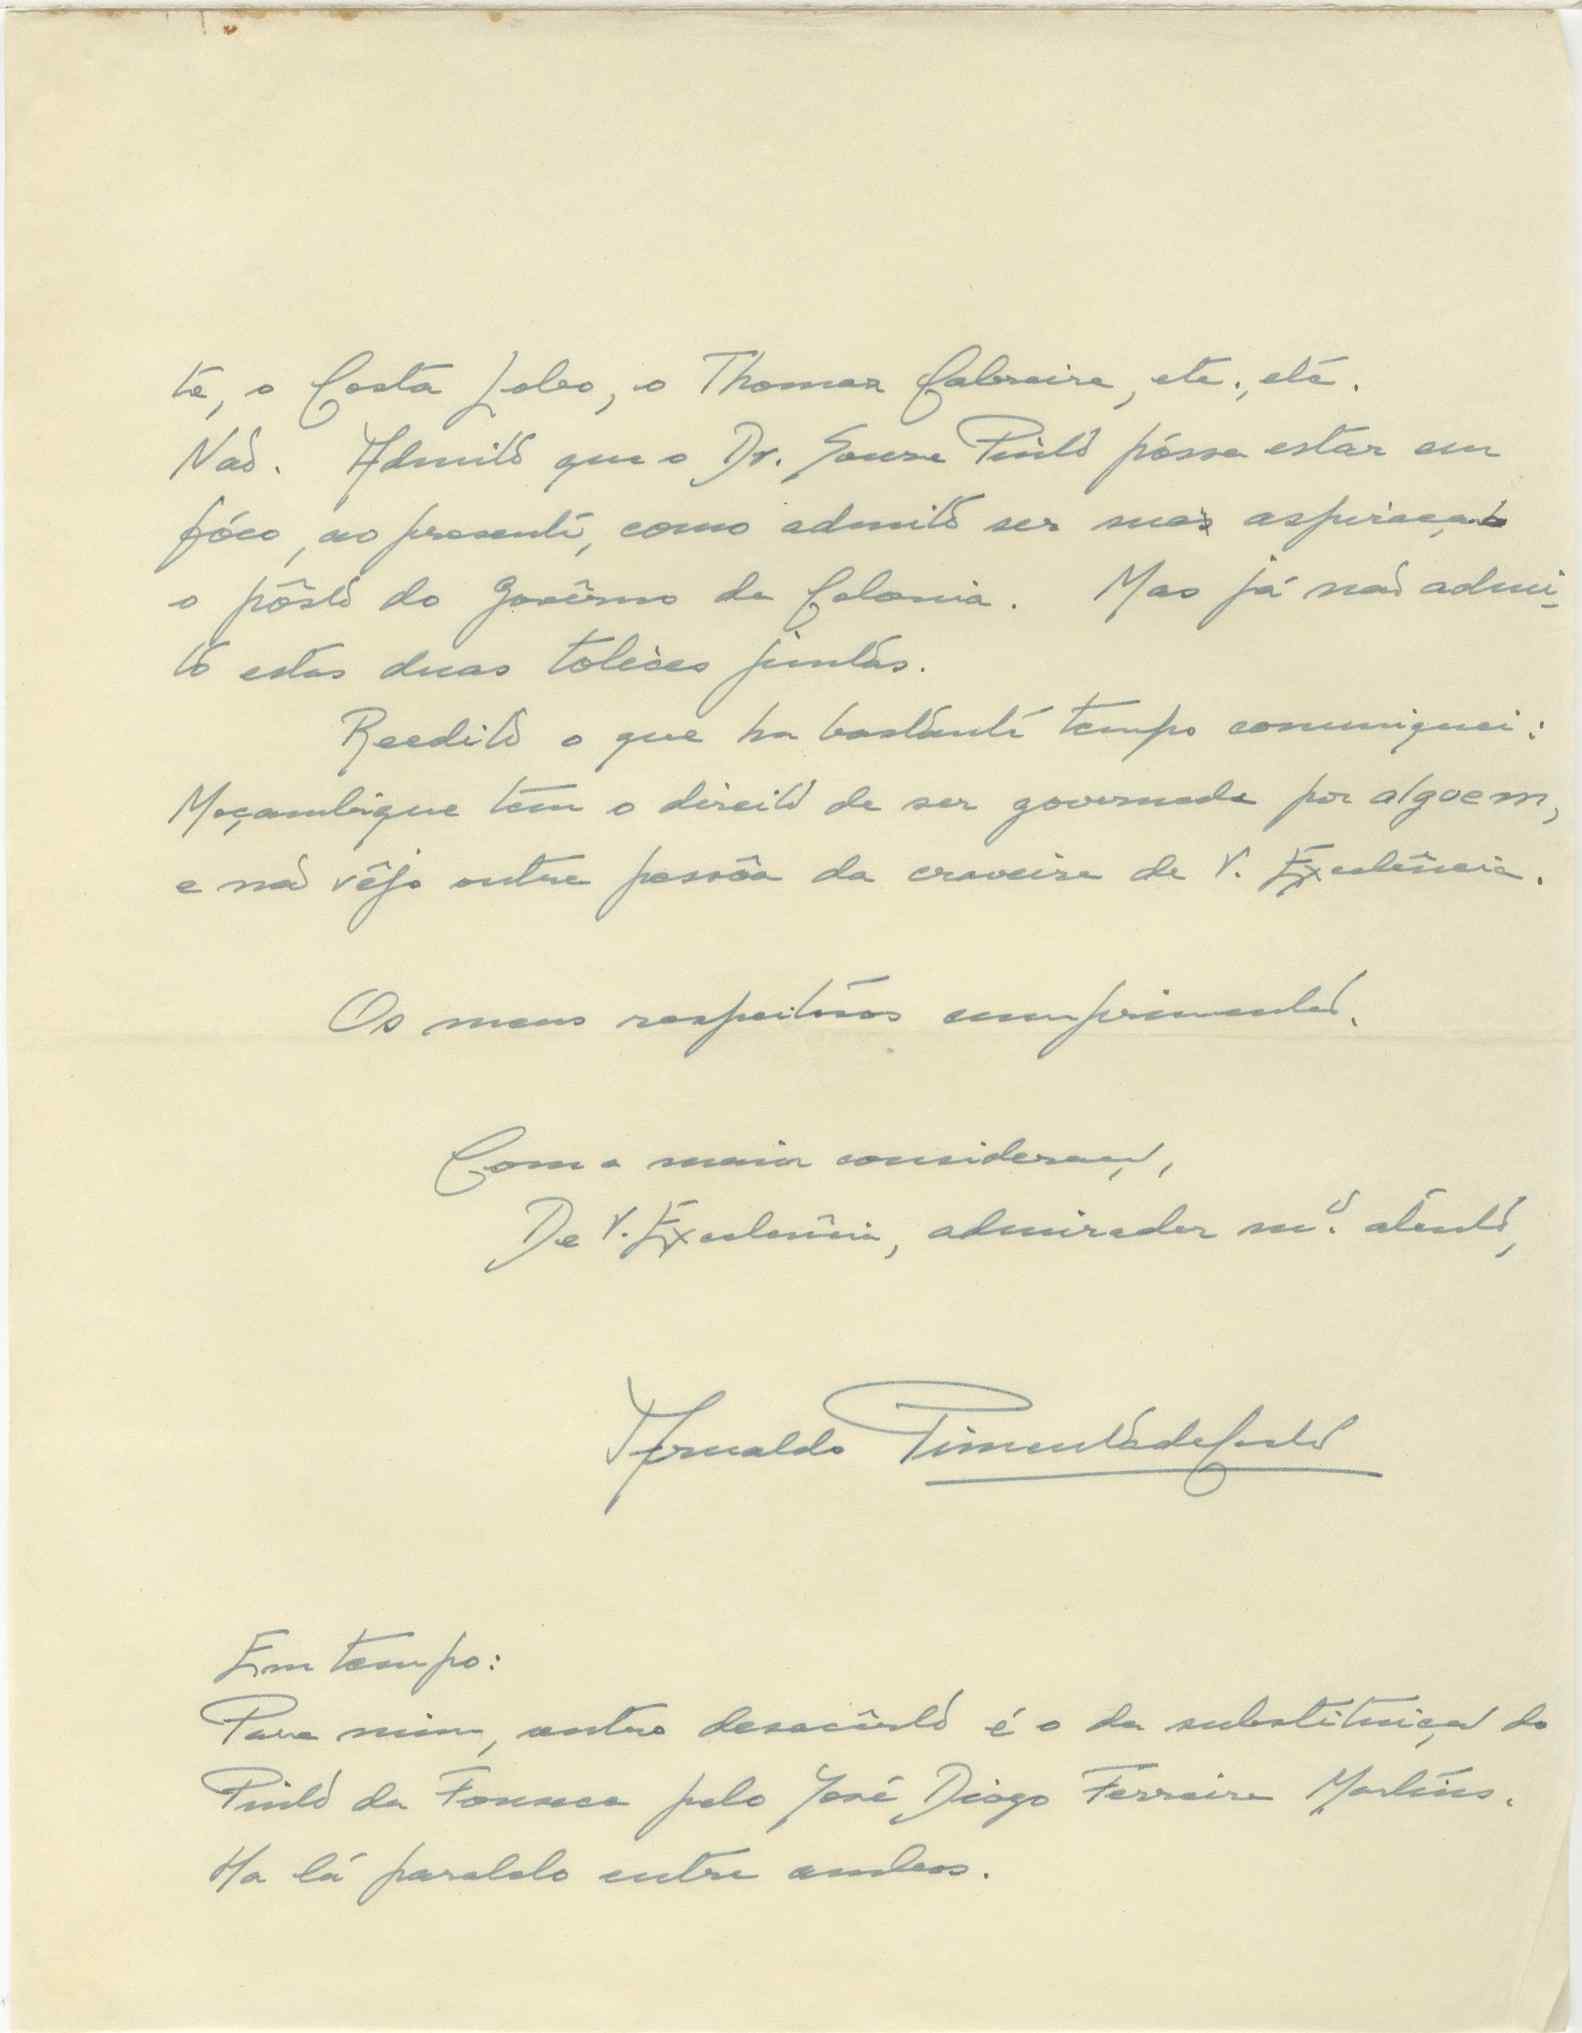 te, o Costa Lobo, o Thomaz Cabreira, etc., etc.
Não. Admito que o Dr. Souza Pinto póssa estar em
fóco, ao presente, como admito ser sua aspiração
o pôsto do Govêrno da Colonia. Mas já não admi-
to estas duas tolices juntas.
Reedito o que ha bastante tempo comuniquei:
Moçambique tem o direito de ser governada por alguem,
e não vêjo outra pessôa da craveira de V. Excelência.
Os meus respeitosos cumprimentos.
Com a maior consideração,
De V. Excelência, admirador mº. atento,
Arnaldo Pimenta da Costa
Em tempo:
Para mim, outro desacêrto é o da substituição do
Pinto da Fonseca pelo José Diogo Ferreira Martins.
Ha lá paralelo entre ambos.